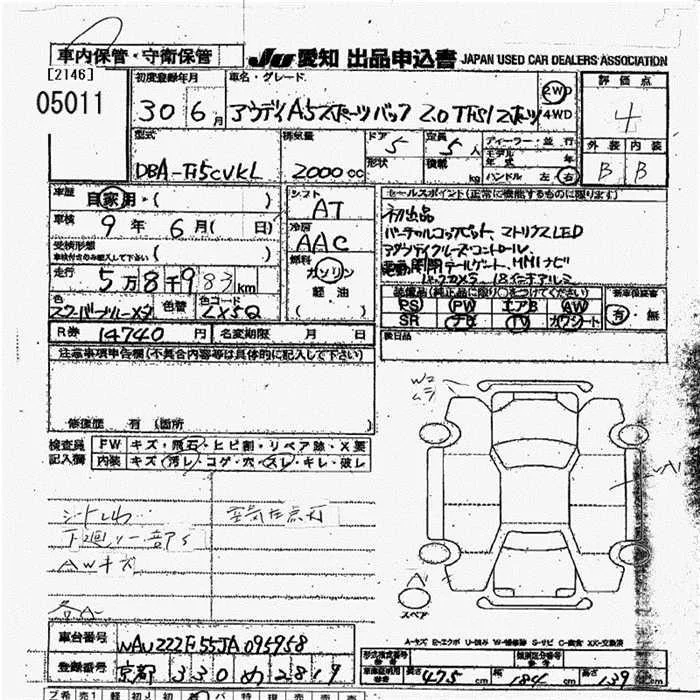 車内保管・守衛保管
JU 愛知 出品申込書 JAPAN USED CAR DEALERS ASSOCIATION
[2146]
05011
初度登録年月
30 6月
車名・グレード
アウディA5スポーツバック 2.0 TFSI スポーツ
2WD
4WD
評価点
4
外装 内装
B B
型式
DBA-F5CVKL
排気量
2000cc
ドア 5
形状
定員 5人
積載 kg
ディーラー・並行
モデル年式 年
ハンドル 左・右
車歴 自家用・( )
車検 9年 6月( 日)
受検形態
走行 5万8千983km
色 色替 色コード
LX5Q
シフト AT
冷房 AAC
燃料 ガソリン
軽油
( )
セールスポイント(正常に機能するものに限ります)
初出品
バーチャルコックピット マトリクスLED
アダプティブクルーズコントロール
電動開閉テールゲート、MMIナビ
18インチアルミ
装備品(純正品に限り○をつけてください)
PS PW エアB AW
SR ナビ TV カワシート
新車保証書
有・無
後日品
R券 14740円 名変期限 月 日
注意事項申告欄(不具合内容等は具体的に記入して下さい)
修復歴 有(箇所 )
検査員記入欄
FW キズ・飛石・ヒビ割・リペア跡・X要
内装 キズ・汚レ・コゲ・穴・スレ・キレ・破レ
シートしわ
空気圧点灯
下廻り一部サビ
AWキズ
各A
W2
ムラ
A1
A1
スペア
A-キズ E-エクボ U-凹み W-補修跡 S-サビ C-腐食 XX-交換済
車台番号 WAUZZZF55JA095958
登録番号 京都 330 め 2819
長さ 475cm 幅 184cm 高さ 139cm